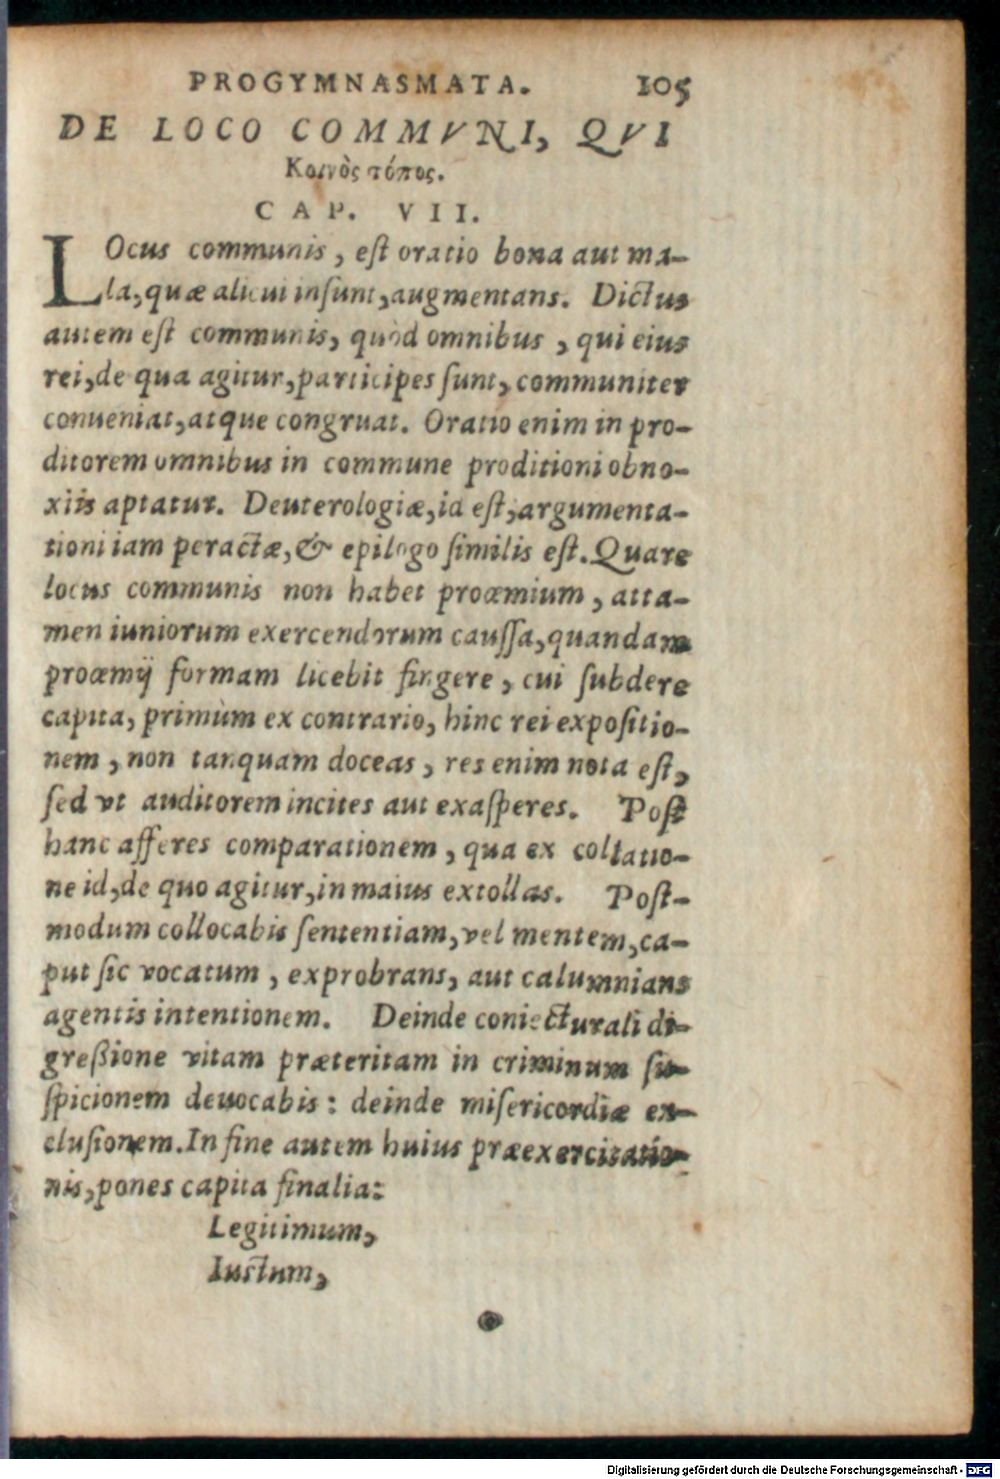 PROGYMNASMATA. 105
DE LOCO COMMVNI, QVI
Κοινὸς τόπος.
CAP. VII.
LOcus communis, est oratio bona aut ma-
la, quæ alicui insunt, augmentans. Dictus
autem est communis, quòd omnibus, qui eius
rei, de qua agitur, participes sunt, communiter
conueniat, atque congruat. Oratio enim in pro-
ditorem omnibus in commune proditioni obno-
xiis aptatur. Deuterologiæ, id est, argumenta-
tioni iam peractæ, & epilogo similis est. Quare
locus communis non habet proœmium, atta-
men iuniorum exercendorum caussa, quandam
proœmij formam licebit fingere, cui subdere
capita, primùm ex contrario, hinc rei expositio-
nem, non tanquam doceas, res enim nota est,
sed vt auditorem incites aut exasperes. Post
hanc afferes comparationem, qua ex collatio-
ne id, de quo agitur, in maius extollas. Post-
modum collocabis sententiam, vel mentem, ca-
put sic vocatum, exprobrans, aut calumnians
agentis intentionem. Deinde coniecturali di-
greßione vitam præteritam in criminum su-
spicionem deuocabis: deinde misericordiæ ex-
clusionem. In fine autem huius præexercitatio-
nis, pones capita finalia:
Legitimum,
Iustum,
Digitalisierung gefördert durch die Deutsche Forschungsgemeinschaft - DFG